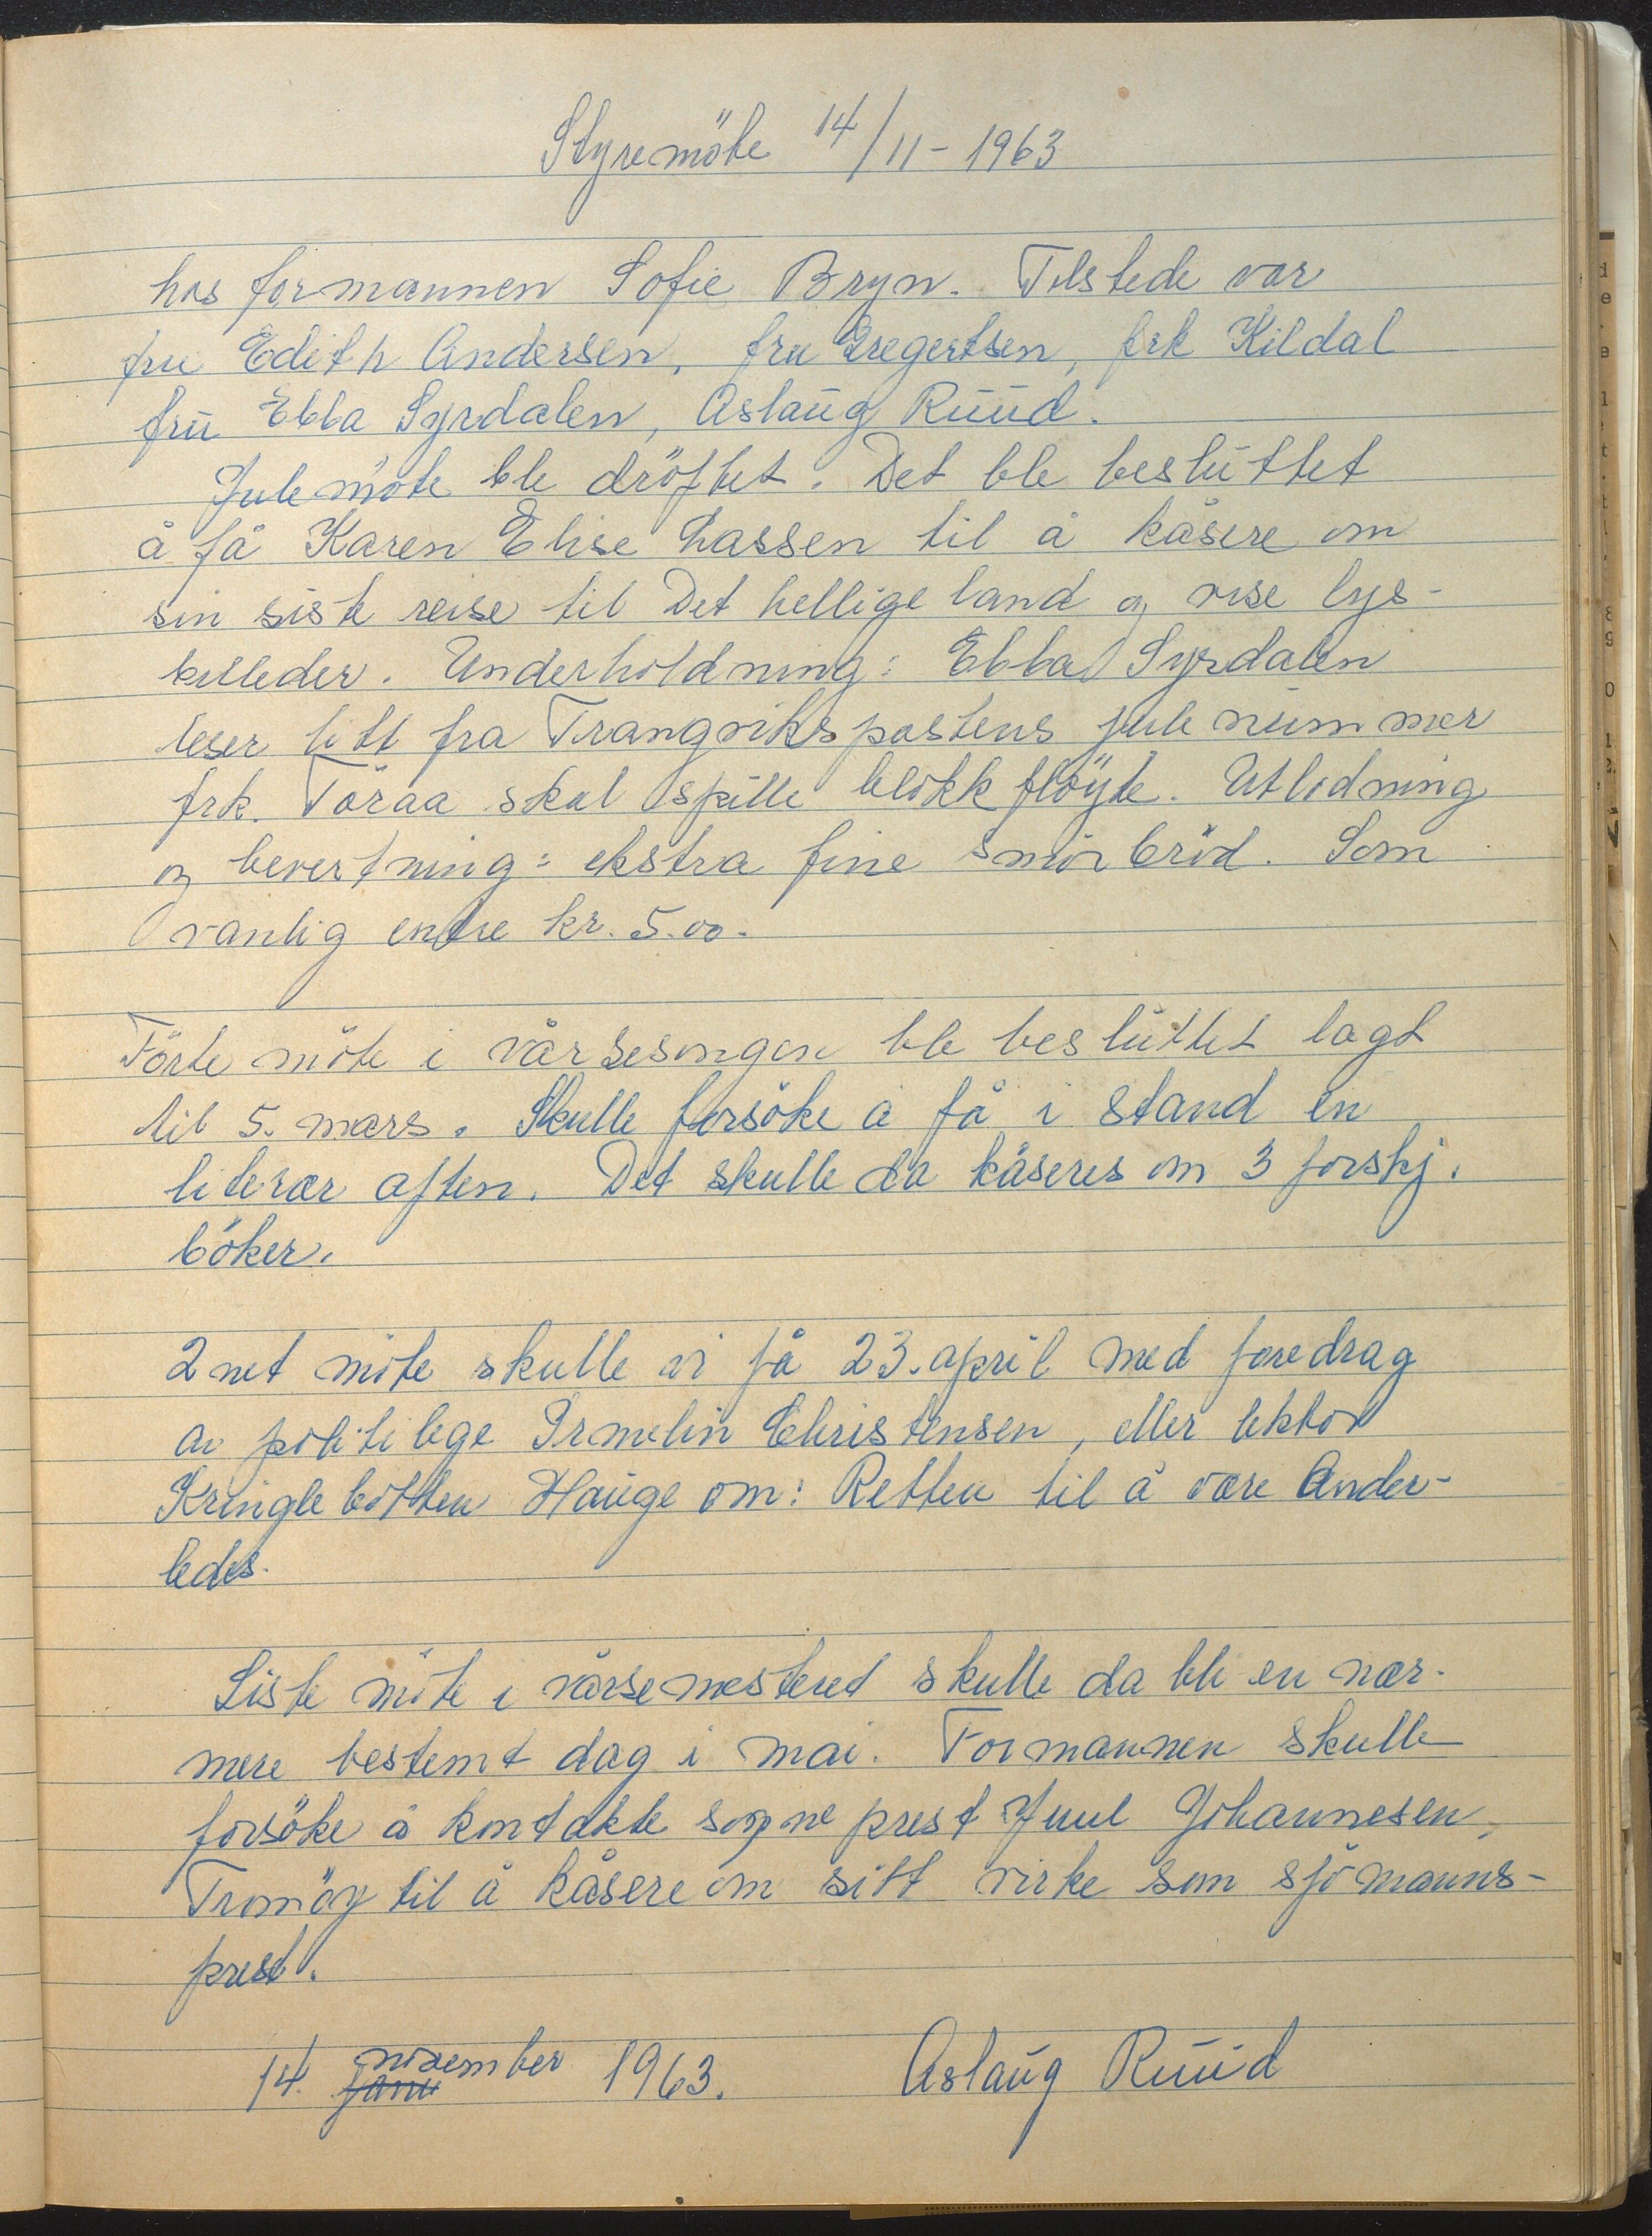 Styremöte 14/11-1963
hos formannen Sofie Bryn. Tilstede var
fru Edith Andersen, fru Gregertsen, frk Kildal
fru Ebba Syrdalen, Aslaug Ruud.
Julemöte ble dröftet. Det ble besluttet
å få Karen Elise Lassen til å kåsere om
sin siste reise til Det hellige land og vise lys-
billeder. Underholdning: Ebba Syrdalen
leser litt fra Trangvikspostens julenummer
frk. Töraa skal spille blokkflöyte. Utlodning
og bevertning: ekstra fine smörbröd. Som
vanlig entre kr. 5.00.
Förte möte i vårsesongen ble besluttet lagt
til 5. mars. Skulle forsöke å få i stand en
literær aften. Det skulle da kåseres om 3 forskj.
böker.
2net möte skulle vi få 23. april med foredrag
av politilege Irmelin Christensen, eller lektor
Kringlebotten Hauge om: Retten til å være Ander-
ledes.
Siste möte i vårsemesteret skulle da bli en nær-
mere bestemt dag i mai. Formannen skulle
forsöke å kontakte sogneprest Juul Johannesen,
Tromöy til å kåsere om sitt virke som sjömanns-
prest.
14. janu november 1963. Aslaug Ruud